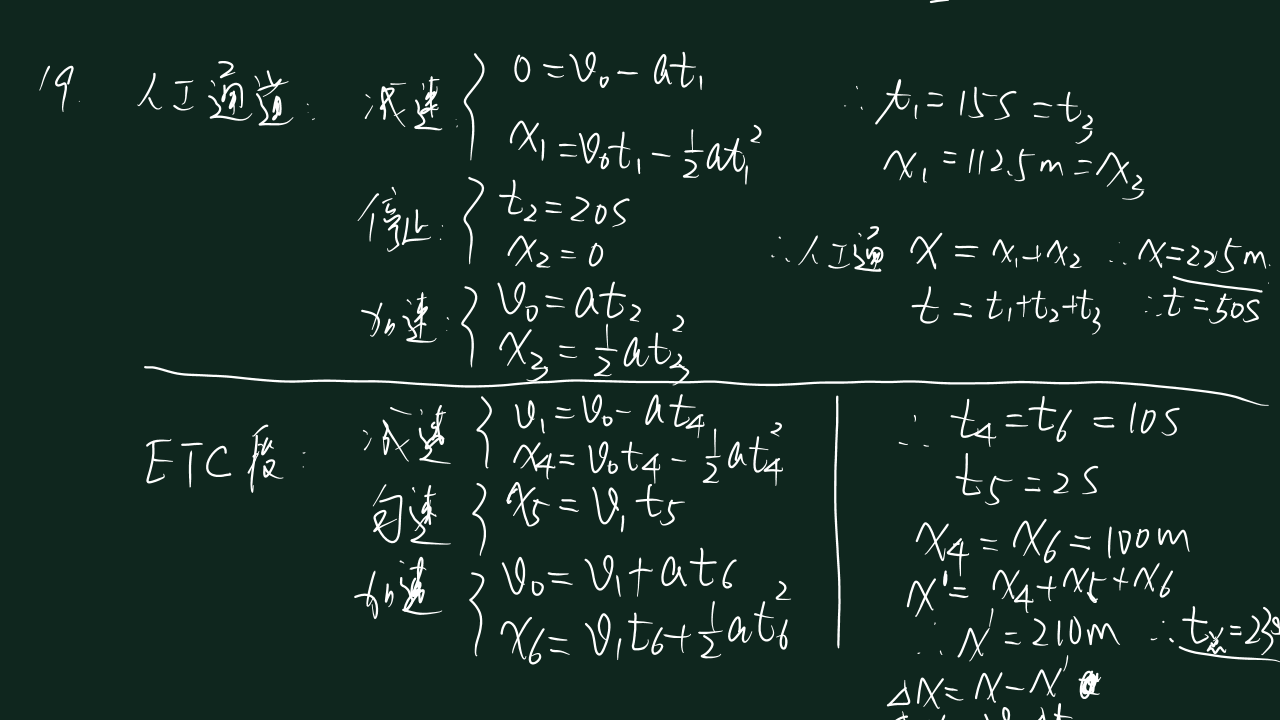 19. 人工通道: 减速: { 0 = v₀ - at₁
x₁ = v₀t₁ - ½at₁²
停止: { t₂ = 20s
x₂ = 0
加速: { v₀ = at₂
x₃ = ½at₃²
∴ t₁ = 15s = t₃
x₁ = 112.5m = x₃
∴人工通 x = x₁+x₂ ∴ x = 225m
t = t₁+t₂+t₃ ∴ t = 50s
ETC段: 减速 { v₁ = v₀ - at₄
x₄ = v₀t₄ - ½at₄²
匀速 { x₅ = v₁t₅
加速 { v₀ = v₁ + at₆
x₆ = v₁t₆ + ½at₆²
∴ t₄ = t₆ = 10s
t₅ = 2s
x₄ = x₆ = 100m
x' = x₄+x₅+x₆
∴ x' = 210m ∴
Δx = x - x'